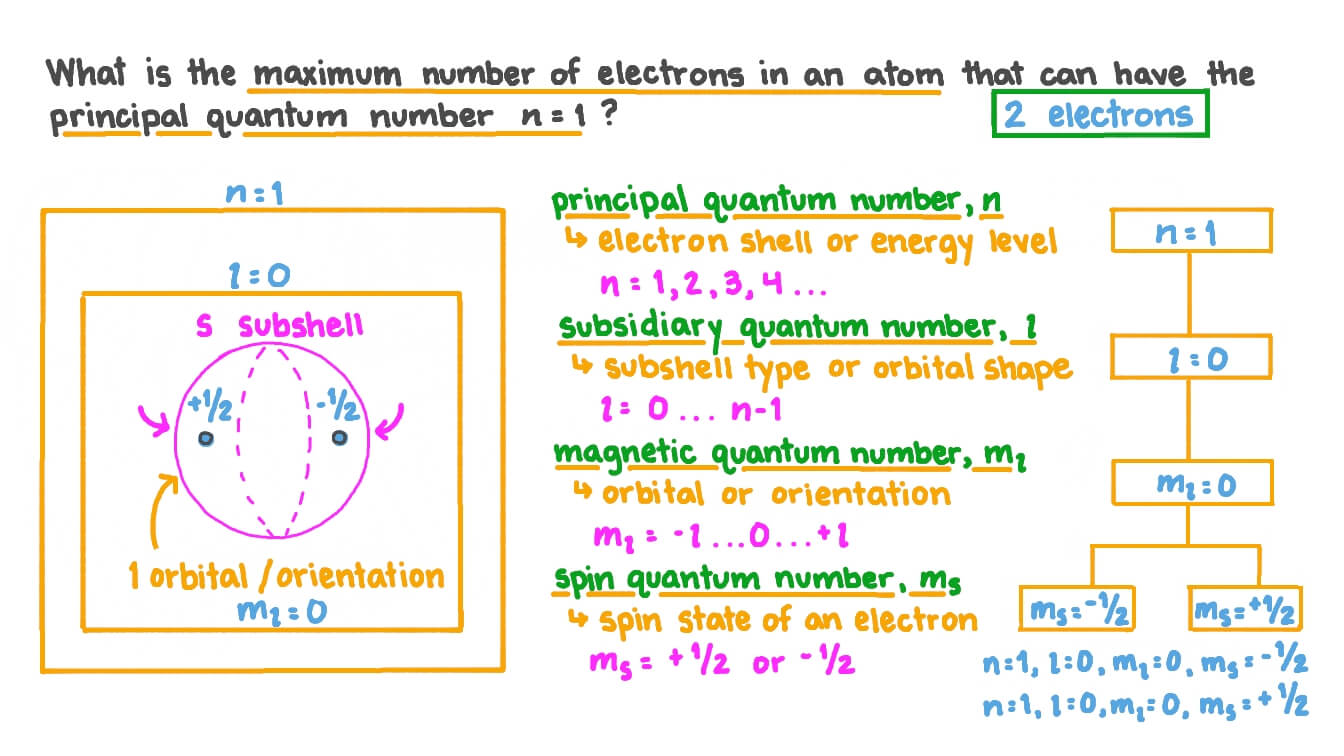 What is the maximum number of electrons in an atom that can have the
principal quantum number n=1?
2 electrons
n=1
l=0
s subshell
+1/2
-1/2
1 orbital/orientation
mₗ=0
principal quantum number, n
↳ electron shell or energy level
n = 1, 2, 3, 4 ...
subsidiary quantum number, l
↳ subshell type or orbital shape
l = 0 ... n-1
magnetic quantum number, mₗ
↳ orbital or orientation
mₗ = -l ...0...+l
spin quantum number, mₛ
↳ spin state of an electron
mₛ = +1/2 or -1/2
n=1
l=0
mₗ=0
mₛ=-1/2
mₛ=+1/2
n=1, l=0, mₗ=0, mₛ=-1/2
n=1, l=0, mₗ=0, mₛ=+1/2